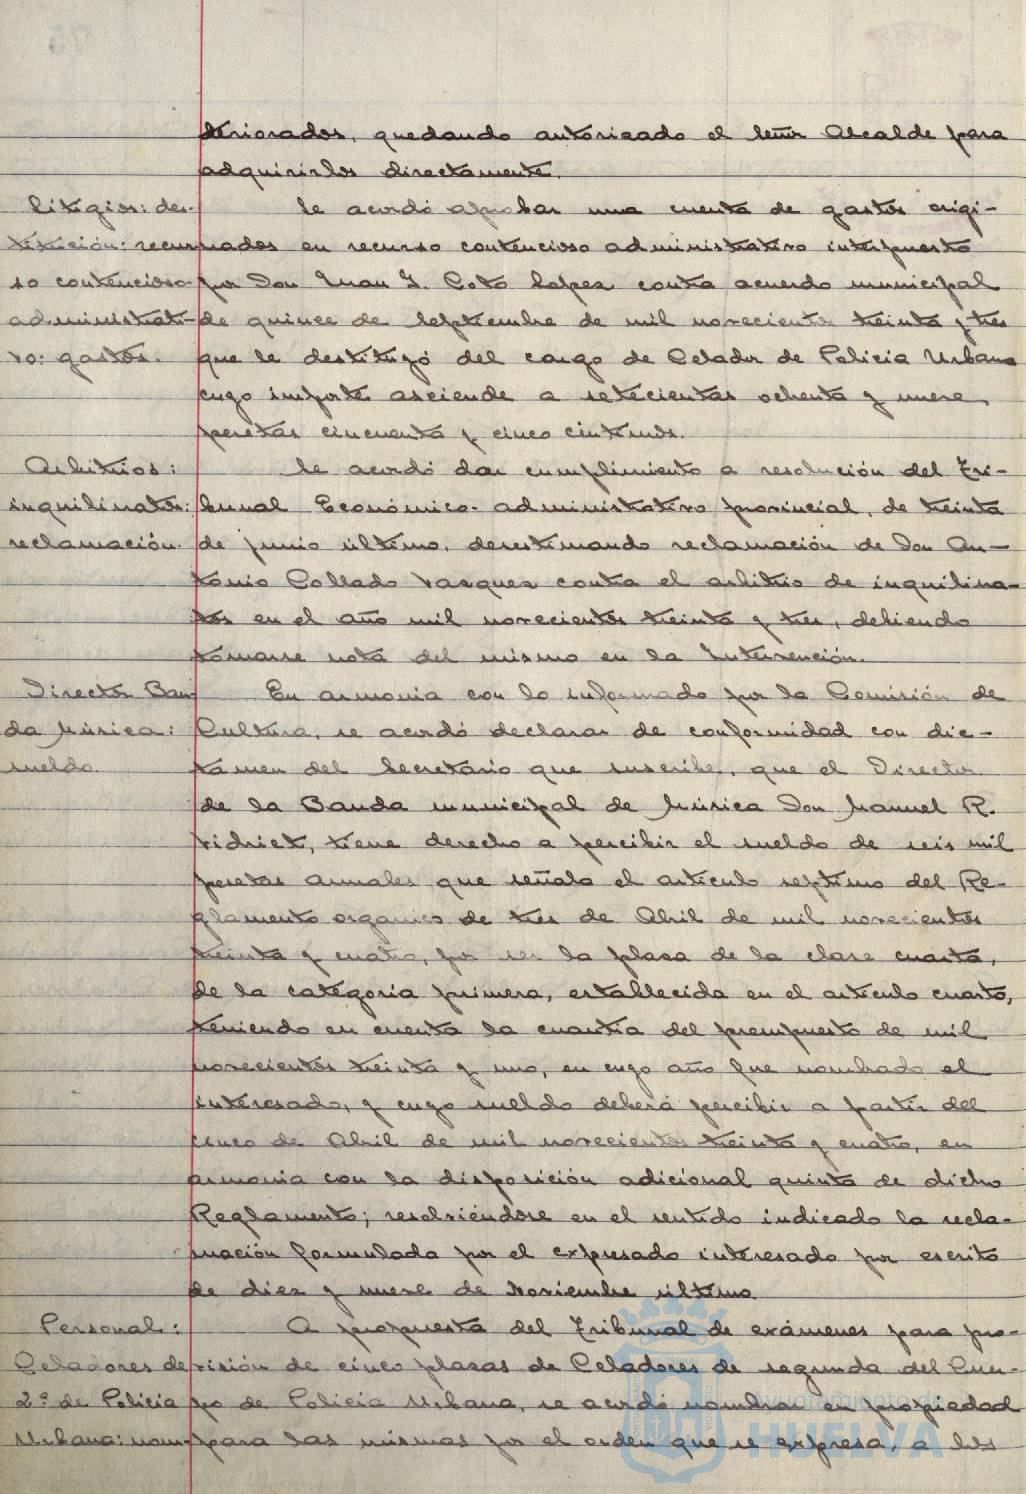 teriorados, quedando autorizado el señor Alcalde para
adquirirlos directamente.
Litigios: des-
titución: recur-
so contencioso-
administrati-
vo: gastos.
Se acordó aprobar una cuenta de gastos origi-
nados en recurso contencioso administrativo interpuesto
por Don Juan J. Coto Lopez contra acuerdo municipal
de quince de Septiembre de mil novecientos treinta y tres
que le destituyó del cargo de Celador de Policia Urbana
cuyo importe asciende a setecientas ochenta y nueve
pesetas cincuenta y cinco céntimos.
Arbitrios:
inquilinatos:
reclamación.
Se acordó dar cumplimiento a resolución del Tri-
bunal Económico-administrativo provincial, de treinta
de junio último, desestimando reclamación de Don An-
tonio Collado Vasquez contra el arbitrio de inquilina-
tos en el año mil novecientos treinta y tres, debiendo
tomarse nota del mismo en la Intervención.
Director Ban-
da Música:
sueldo.
En armonia con lo informado por la Comisión de
Cultura, se acordó declarar de conformidad con dic-
tamen del Secretario que suscribe, que el Director
de la Banda municipal de Música Don Manuel R.
Vidriet, tiene derecho a percibir el sueldo de seis mil
pesetas anuales que señala el articulo septimo del Re-
glamento organico de tres de Abril de mil novecientos
treinta y cuatro, por ser la plaza de la clase cuarta,
de la categoria primera, establecida en el articulo cuarto,
teniendo en cuenta la cuantia del presupuesto de mil
novecientos treinta y uno, en cuyo año fue nombrado el
interesado, y cuyo sueldo deberá percibir a partir del
cinco de Abril de mil novecientos treinta y cuatro, en
armonia con la disposición adicional quinta de dicho
Reglamento; resolviéndose en el sentido indicado la recla-
mación formulada por el expresado interesado por escrito
de diez y nueve de Noviembre último
Personal:
Celadores de
2ª de Policia
Urbana: nom-
A propuesta del Tribunal de exámenes para pro-
visión de cinco plazas de Celadores de segunda del Cuer-
po de Policia Urbana, se acordó nombrar en propiedad
para las mismas por el orden que se expresa, a los
Ayuntamiento de
HUELVA